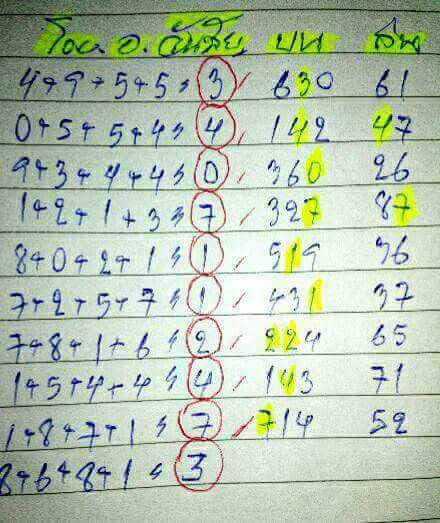 โดย. อ. วันชัย บน ล่าง
4+9+5+5 = 3 / 630 61
0+5+5+4 = 4 / 142 47
9+3+4+4 = 0 / 360 26
1+2+1+3 = 7 / 327 87
8+0+2+1 = 1 / 519 36
7+2+5+7 = 1 / 431 37
7+8+1+6 = 2 / 224 65
1+5+4+4 = 4 / 143 71
1+8+7+1 = 7 / 714 52
8+6+8+1 = 3